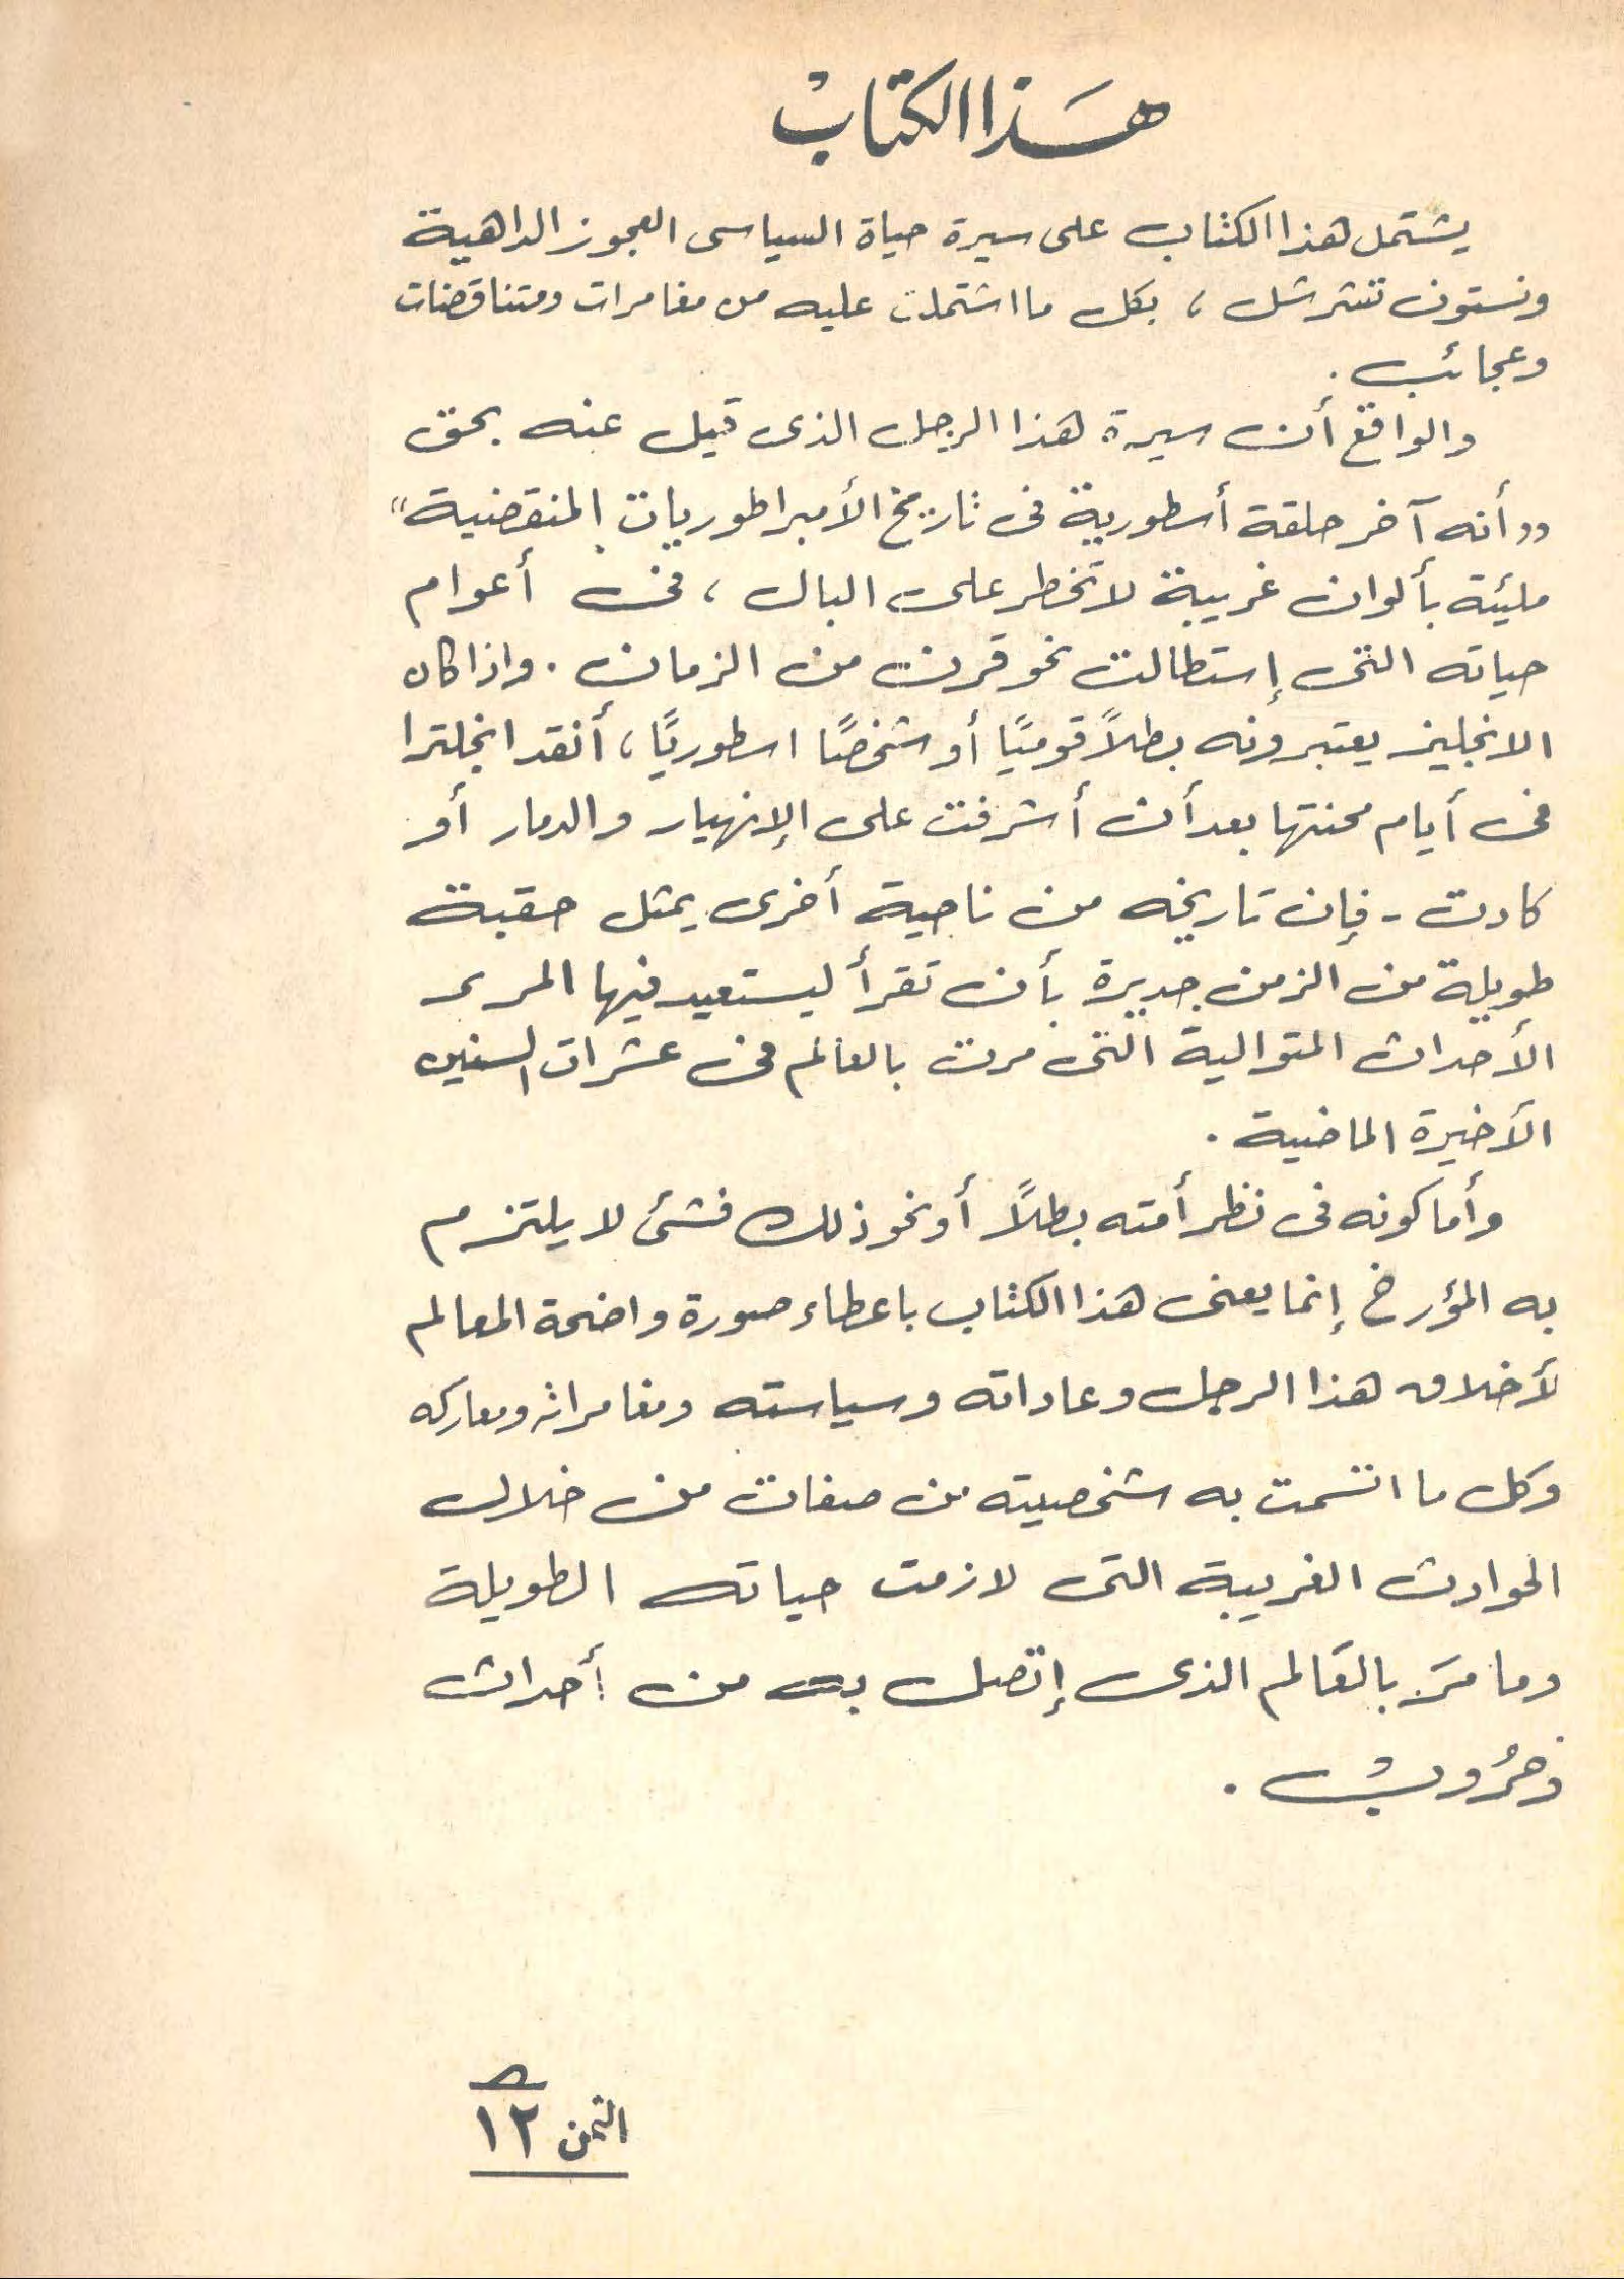 هَذا الكتابْ
يشتمل هذا الكتاب على سيرة حياة السياسى العجوز الداهية
ونستون تشرشل ، بكل ما اشتملت عليه من مغامرات ومتناقضات
وعجائب .
والواقع أن سيرة هذا الرجل الذى قيل عنه بحق
"أنه آخر حلقة أسطورية فى تاريخ الأمبراطوريات المنقضية"
مليئة بألوان غريبة لا تخطر على البال ، فى أعوام
حياته التى إستطالت نحو قرن من الزمان . واذا كان
الانجليز يعتبرونه بطلاً قوميًا أو شخصًا اسطوريًا ، أنقد انجلترا
فى أيام محنتها بعد أن أشرفت على الإنهيار والدمار أو
كادت - فإن تاريخه من ناحية أخرى يمثل حقبة
طويلة من الزمن جديرة بأن تقرأ ليستعيد فيها المرء
الأحداث المتوالية التى مرت بالعالم فى عشرات السنين
الأخيرة الماضية .
وأما كونه فى نظر أمته بطلاً أو نحو ذلك فشئ لا يلتزم
به المؤرخ إنما يعنى هذا الكتاب باعطاء صورة واضحة المعالم
لأخلاق هذا الرجل وعاداته وسياسته ومغامراته ومعاركه
وكل ما اتسمت به شخصيته من صفات من خلال
الحوادث الغريبة التى لازمت حياته الطويلة
وما مَرَ بالعَالم الذى إتصل به من أحداث
وَحرُوبْ .
الثمن ١٢